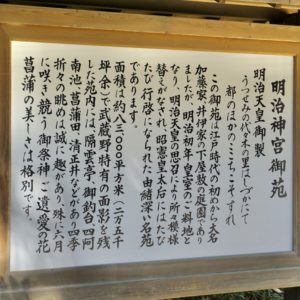 明治神宮御苑
明治天皇御製
うつせみの代々木の里はしづかにて
都のほかのここちこそすれ
この御苑は江戸時代の初めから大名
加藤家、井伊家の下屋敷の庭園であり
ましたが、明治初年皇室のご料地と
なり、明治天皇の思召により所々模様
替えがなされ、昭憲皇太后にはたび
たび行啓になられた由緒深い名苑
であります。
面積は約八三〇〇〇平方米(二万五千
坪余)で武蔵野特有の面影を残
した苑内には隔雲亭、御釣台、四阿
南池、菖蒲田、清正井などがあり四季
折々の眺めは誠に趣があり、殊に六月
に咲き競う御祭神ご遺愛の花
菖蒲の美しさは格別です。